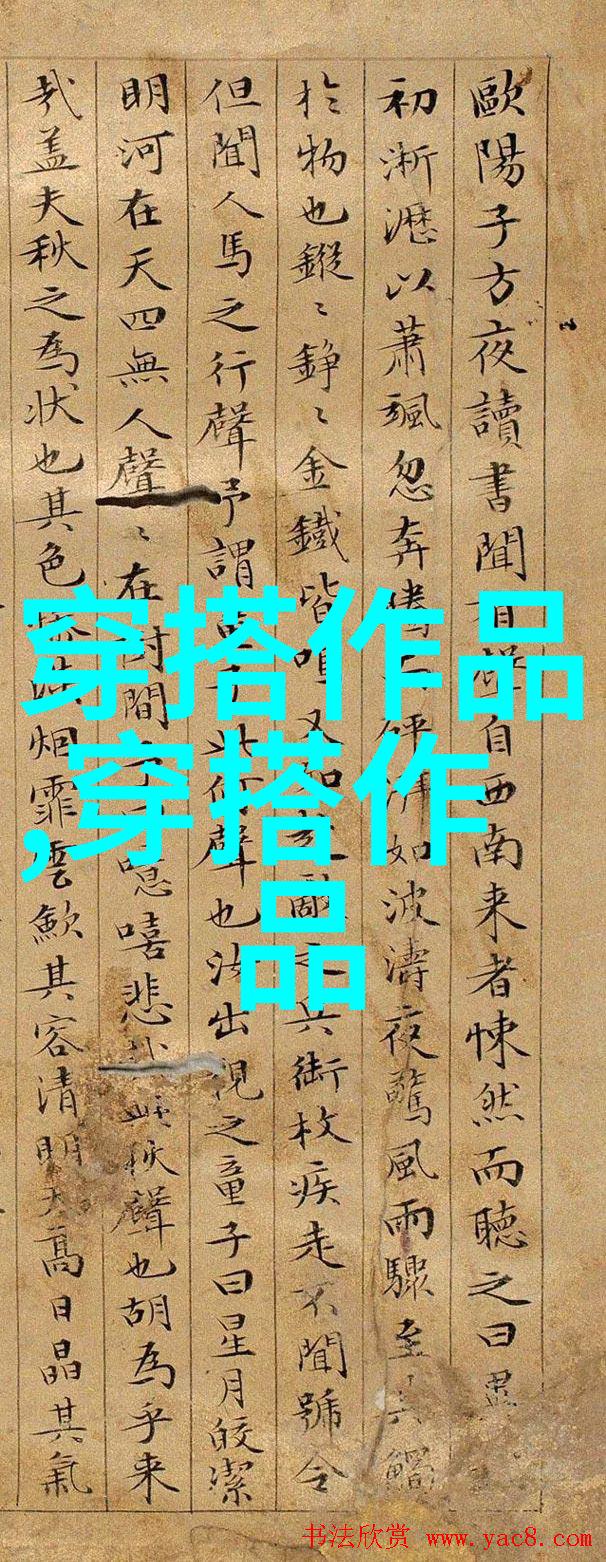 歐陽子方夜讀書聞有聲自西南来者悚然而聽之曰異
初淅瀝以蕭颯忽奔騰而砰湃如波濤夜驚風雨驟至其觸
扵物也鏦〻錚〻金鐵皆鳴又如赴敵之兵銜枚疾走不聞號令
但聞人馬之行聲予謂童子此何聲也汝出視之童子曰星月皎潔
明河在天四無人聲〻在樹間予曰噫嘻悲哉秋聲也胡為乎来
哉盖夫秋之為狀也其色慘淡烟霏雲歛其容清明天高日晶其氣
穿搭作品
,穿搭作
品
书法欣赏 www.yac8.com